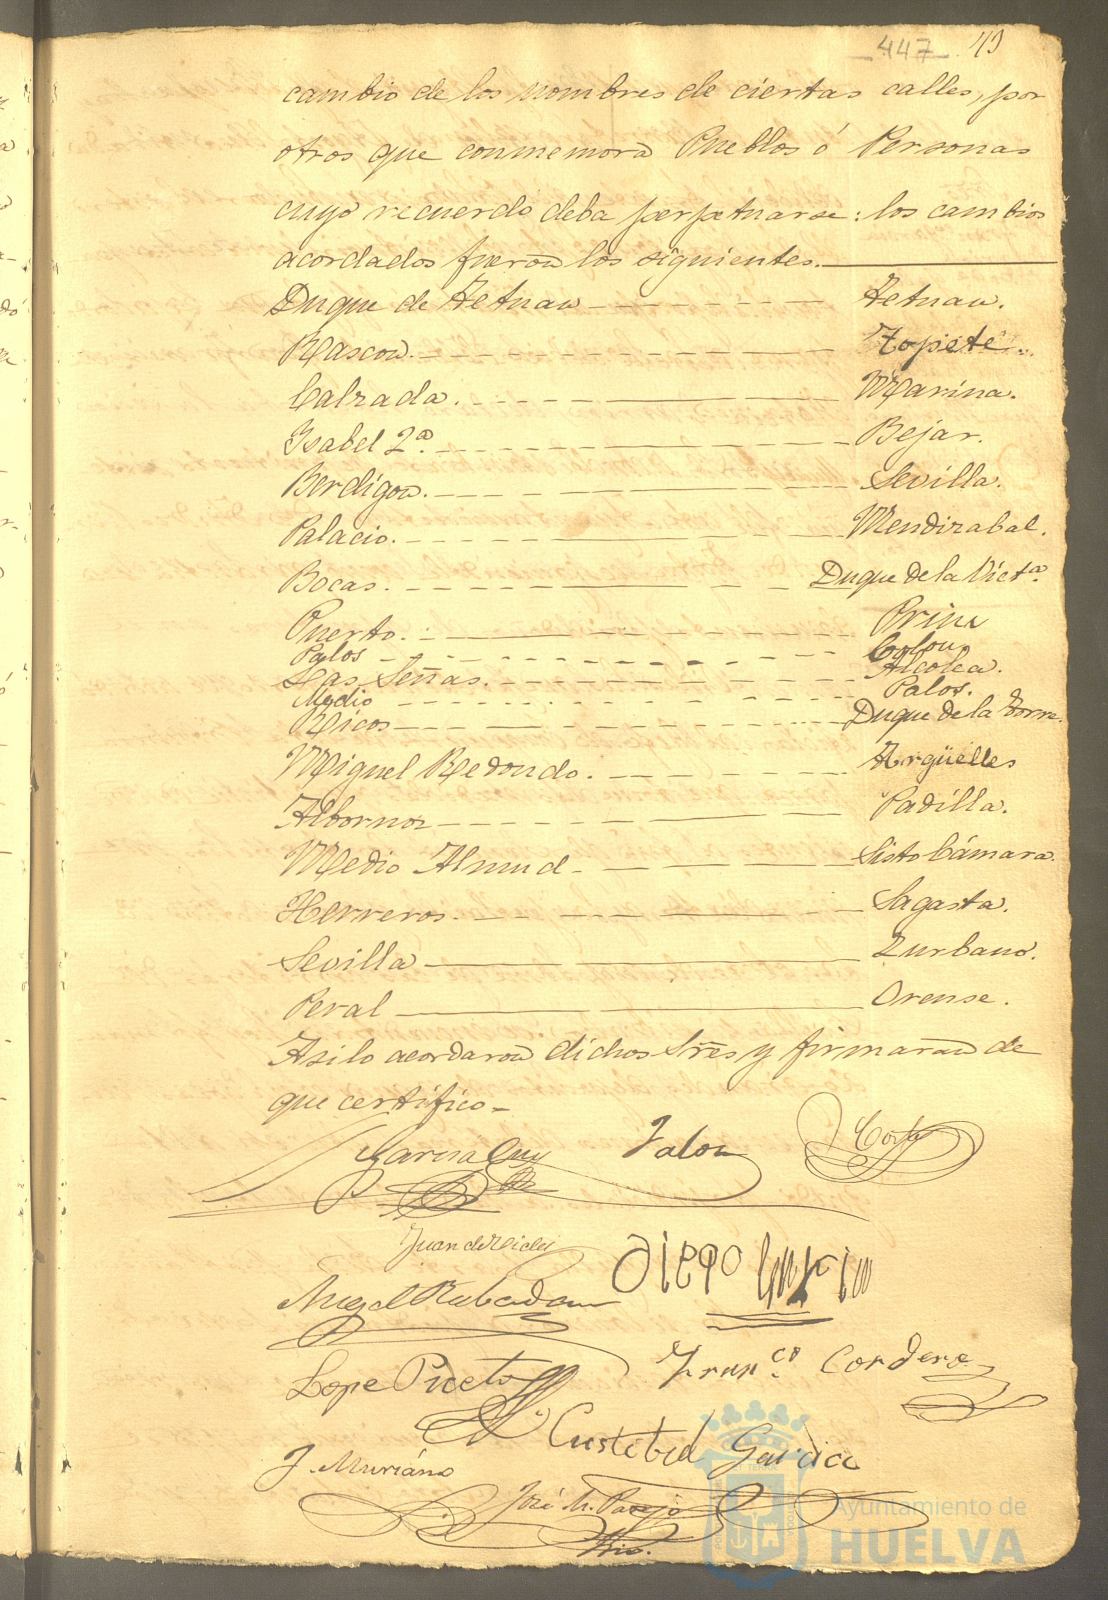 447 43
cambio de los nombres de ciertas calles, por
otros que conmemorā Pueblos ó Personas
cuyo recuerdo deba perpetuarse: los cambios
acordados fueron los siguientes.
Duque de Tetuan - Tetuan.
Rascon. - Topete.
Calzada. - Marina.
Isabel 2ª. - Bejar.
Berdigon. - Sevilla.
Palacio. - Mendizabal.
Bocas. - Duque de la Victª.
Puerto. - Prim
Palos - Colon
Las Señas. - Alcolea.
Medio - Palos.
Ricos - Duque de la Torre.
Miguel Redondo. - Argüelles
Albornoz - Padilla.
Medio Almud - Sisto Cámara.
Herreros. - Sagasta.
Sevilla - Zurbano.
Peral - Orense.
Asi lo acordaron dichos Sres y firmaran de
que certifico -
Garcia Jalon Costa
Juan de
Angel Diego Garcia
Lope Franco. Cordero
Garcia
J. Muriano José M. Parejo
Srio.
Ayuntamiento de
HUELVA